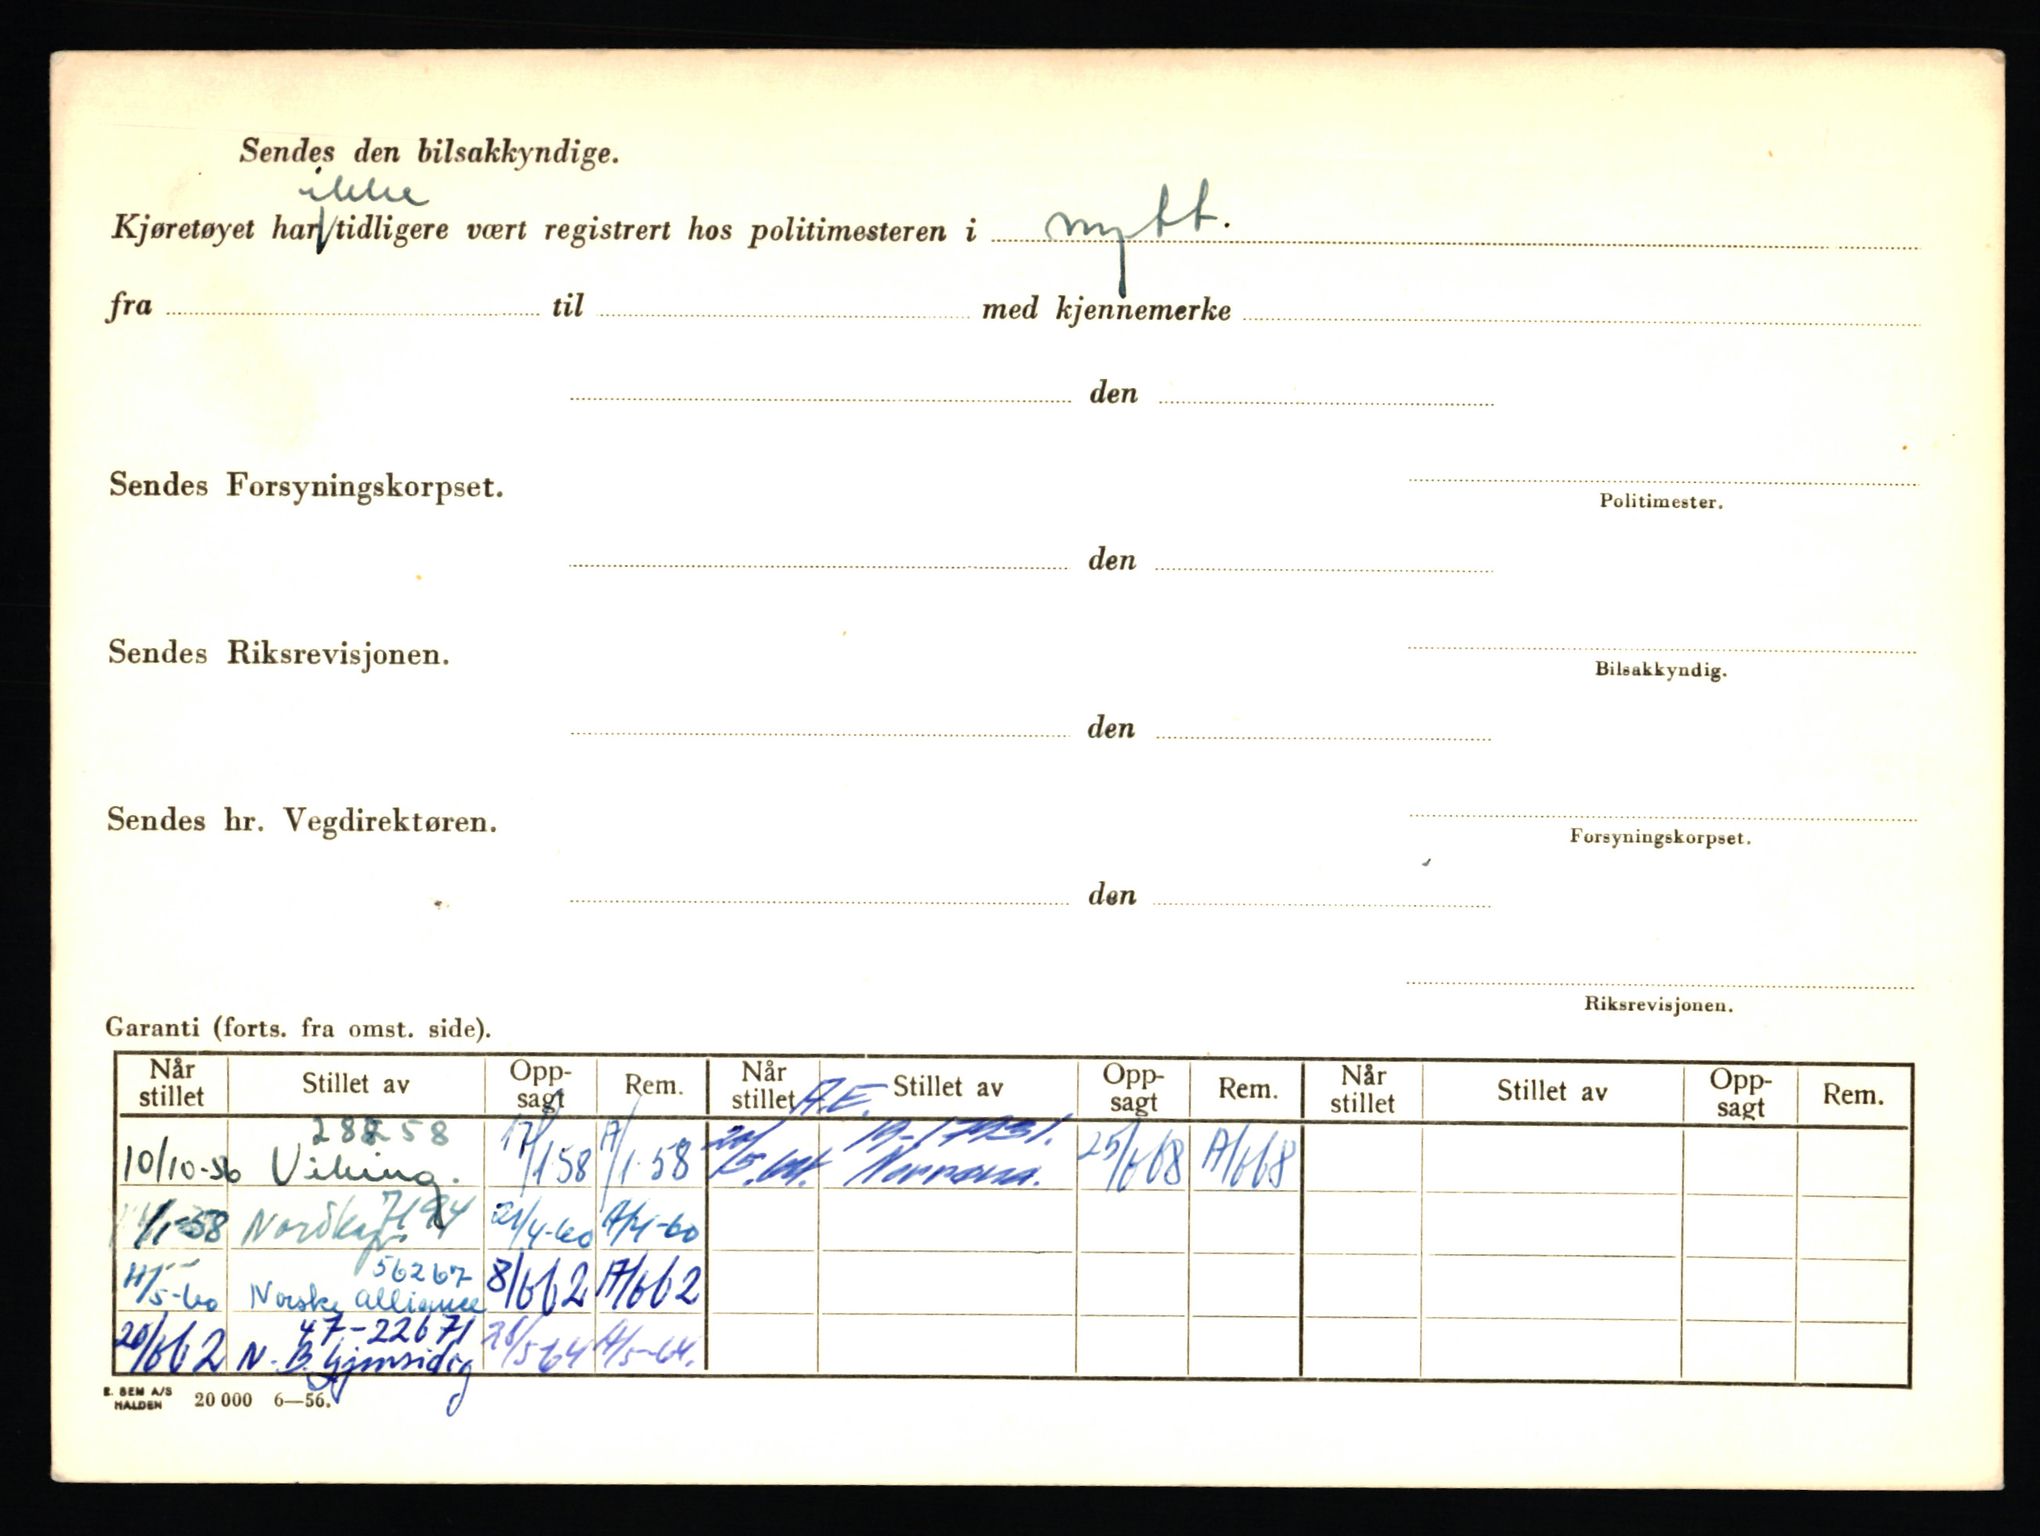 Sendes den bilsakkyndige.
ikke
Kjøretøyet har/tidligere vært registrert hos politimesteren i nytt.
fra til med kjennemerke
den
Sendes Forsyningskorpset.
Politimester.
den
Sendes Riksrevisjonen.
Bilsakkyndig.
den
Sendes hr. Vegdirektøren.
Forsyningskorpset.
den
Riksrevisjonen.
Garanti (forts. fra omst. side).
Når stillet Stillet av Opp-sagt Rem. Når stillet Stillet av Opp-sagt Rem. Når stillet Stillet av Opp-sagt Rem.
A.E.
28258
10/10-56 Viking. 17/1 58 A/1.58 Norrøna. 25/6 68 A/6 68
7194
1-58 Nordkap. 21/4-60 A/4-60
56267
11/5-60 Norske Alliance 8/6 62 A/6 62
47-22671
20/6 62 N. B. Gjensidig 26/5-64 A/5-64.
E. SEM A/S
HALDEN 20 000 6—56.